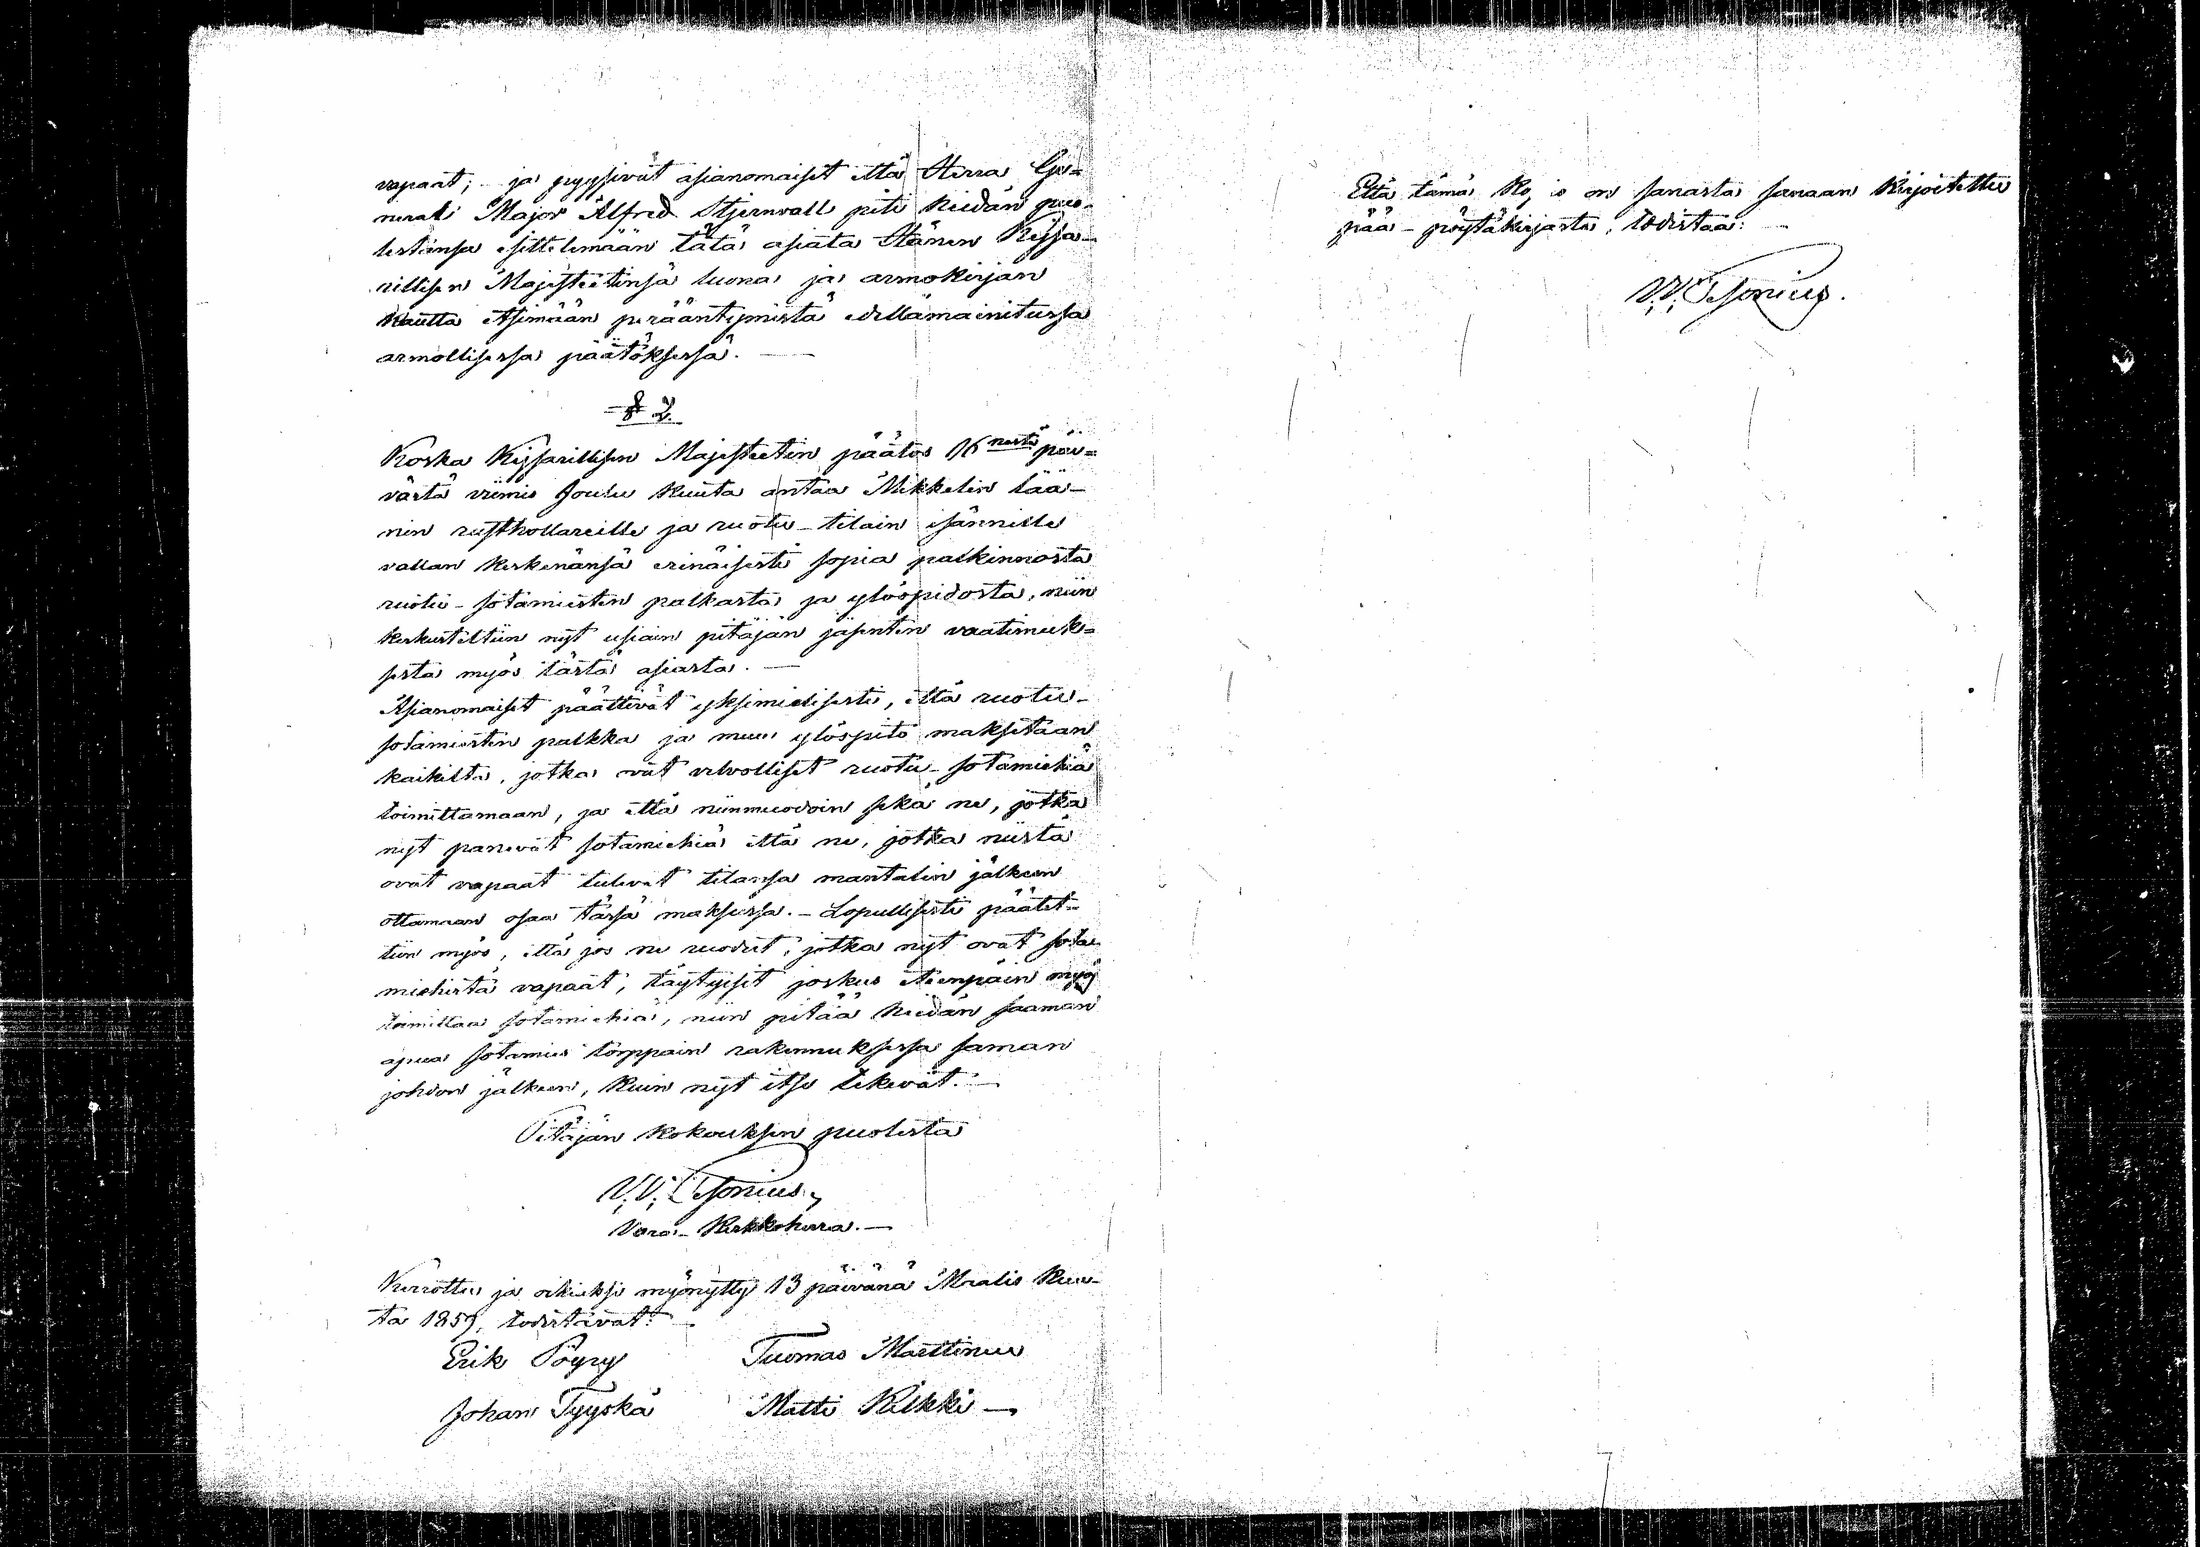 vapaat; ja pyysivät asianomaiset että Herra Ge-
nerali Major Alfred Stjernvall piti heidän puo-
lestansa esittelemään tätä asiata Hänen Keisa-
rillisen Majesteetinsä luona ja armokirjan
kautta etsimään perääntymistä edellämainitussa
armollisessa päätöksessä. —
§ 2.
Koska Keisarillisen Majesteetin päätös 16 nesta päi-
västä viimis Joulu kuuta antaa Mikkelin lää-
nin rusthollareille ja ruotu-tilain isännille
vallan keskenänsä erinäisesti sopia palkinnosta
ruotu-sotamiesten palkasta ja ylöspidosta, niin
keskusteltiin nyt usiain pitäjän jäsenten vaatimuk-
sesta myös tästä asiasta. —
Asianomaiset päättivät yksimielisesti, että ruotu-
sotamiesten palkka ja muu ylöspito maksetaan
kaikilta, jotka ovat velvolliset ruotu-sotamiehiä
toimittamaan, ja että niinmuodoin sekä ne, jotka
nyt panevat sotamiehiä että ne, jotka niistä
ovat vapaat tulevat tilansa mantalin jälkeen
ottamaan osaa tässä maksossa. – Lopullisesti päätet-
tiin myös, että jos ne ruodut, jotka nyt ovat sota-
miehistä vapaat, täytyisit joskus eteenpäin myös
toimittaa sotamiehiä, niin pitää heidän saaman
apua sotamies torppain rakennuksessa saman
johdon jälkeen, kuin nyt itse tekevät. —
Pitäjän kokouksen puolesta
Vara-Kirkkoherra. —
Kerrottu ja oikiaksi myönytty 13 päivänä Maalis kuu-
ta 1859, todistavat:
Erik Pöyry Tuomas Marttinen
Johan Tyyskä Matti Kilkki —
Että tämä ko, io on sanasta sanaan kirjoitettu
pää-pöytäkirjasta, todistaa: —